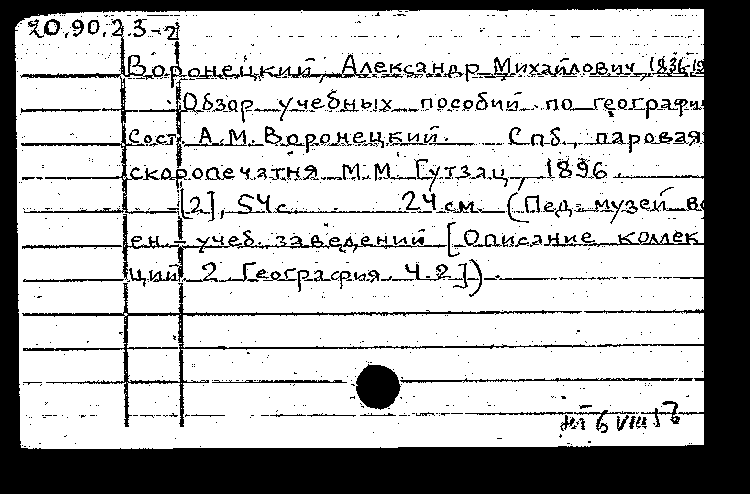 20.90.2.3-2
Воронецкий, Александр Михайлович, 1836-19
Обзор учебных пособий по географи
Сост. А.М. Воронецкий. Спб., паровая
скоропечатня М.М. Гутзац, 1896.
[2], 54с. 24см. (Пед. музей во
ен.-учеб. заведений [Описание коллек
ций 2 География. Ч.2]).
6 VIII 56